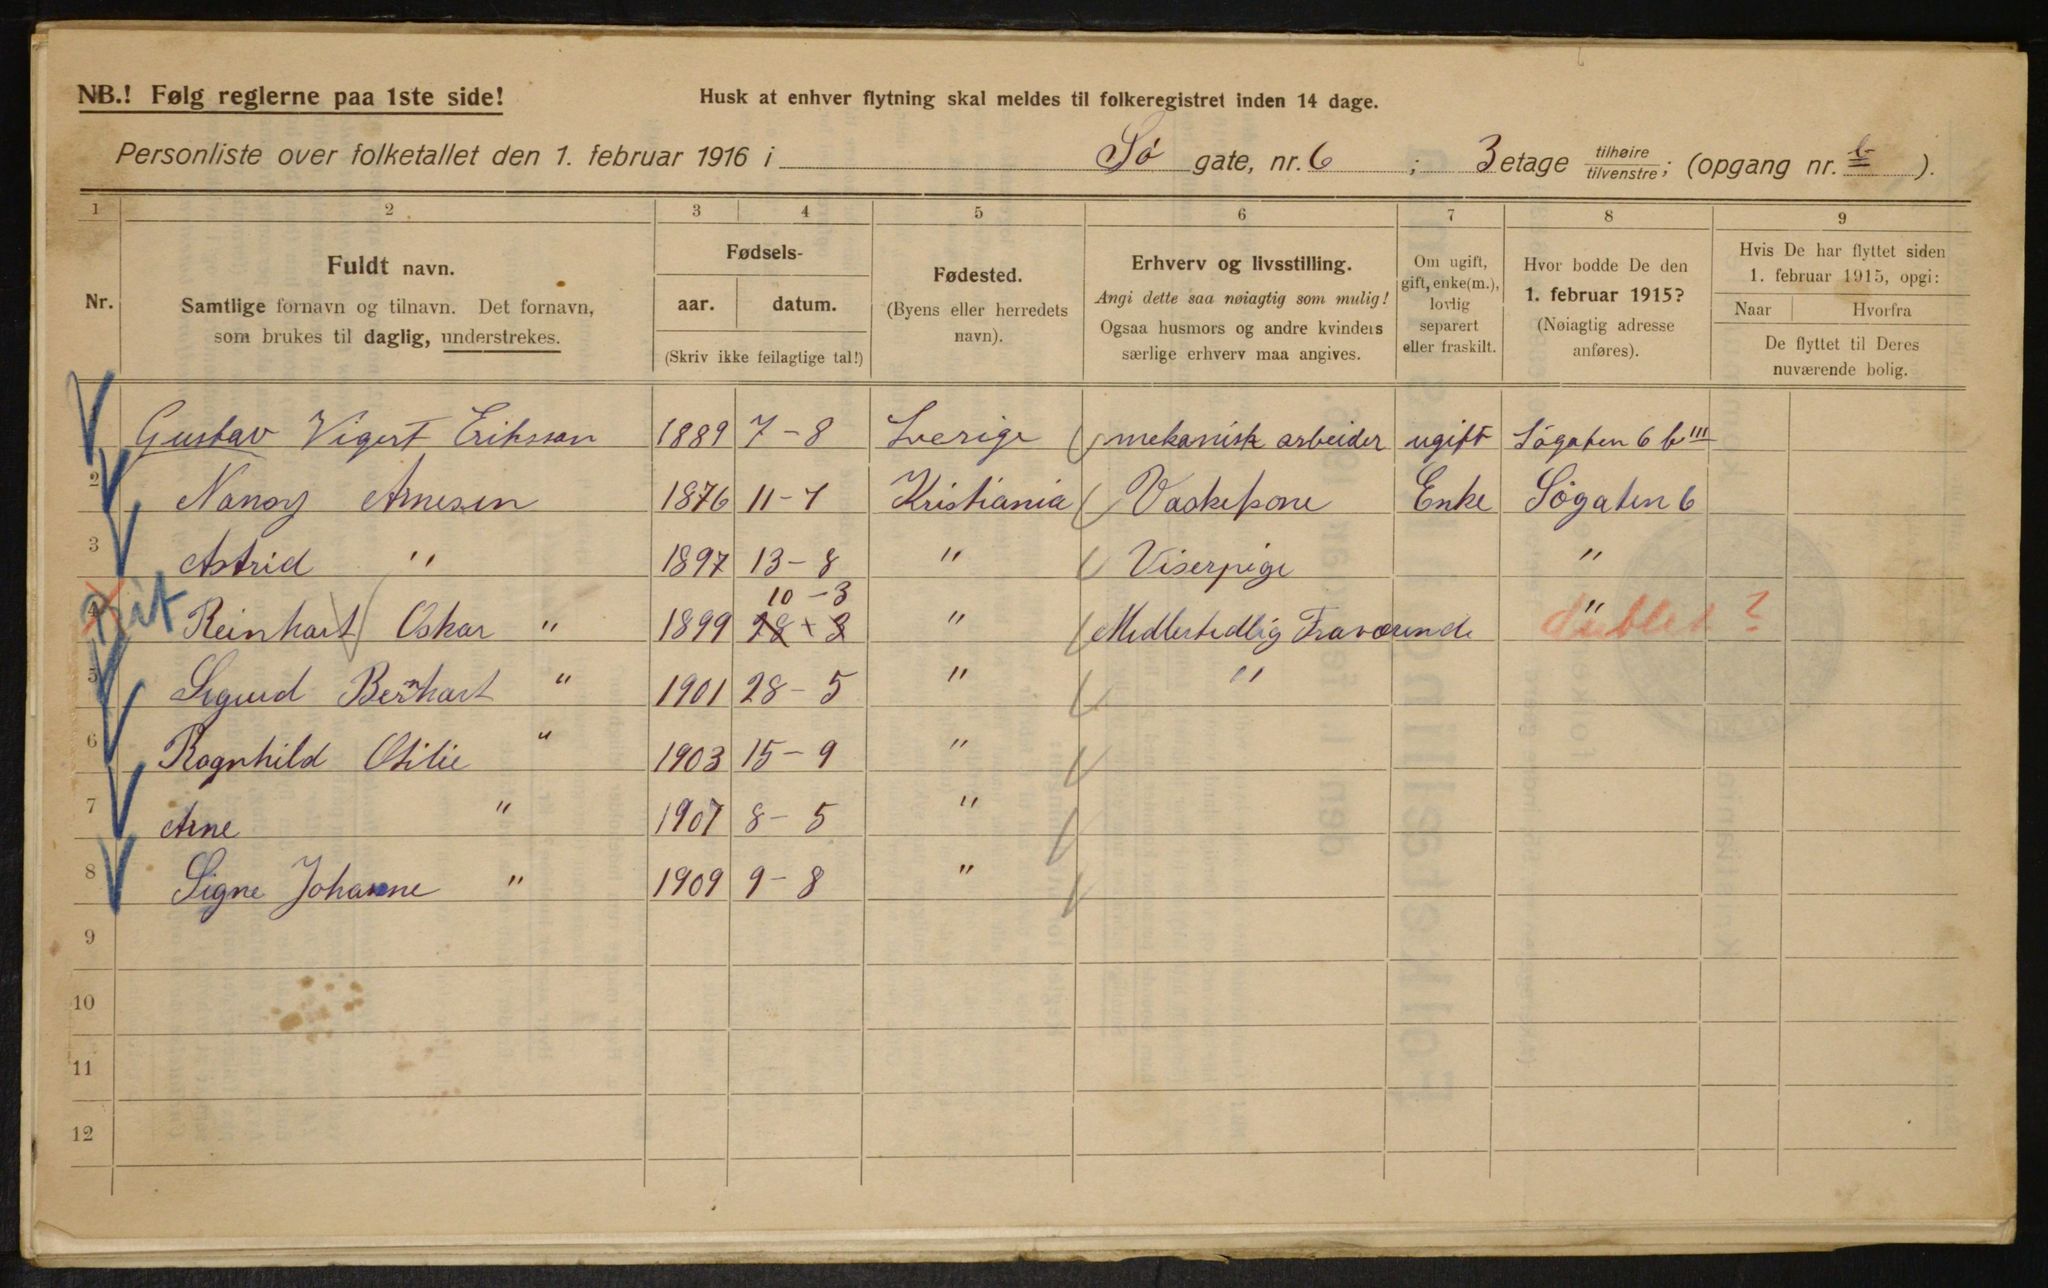 NB.! Følg reglerne paa 1ste side!
Husk at enhver flytning skal meldes til folkeregistret inden 14 dage.
Personliste over folketallet den 1. februar 1916 i Sø gate, nr. 6 ; 3 etage tilhøire tilvenstre ; (opgang nr. b ).
1 2 3 4 5 6 7 8 9
Nr.
Fuldt navn.
Samtlige fornavn og tilnavn. Det fornavn,
som brukes til daglig, understrekes.
Fødsels-
aar. datum.
(Skriv ikke feilagtige tal!)
Fødested.
(Byens eller herredets
navn).
Erhverv og livsstilling.
Angi dette saa nøiagtig som mulig!
Ogsaa husmors og andre kvinders
særlige erhverv maa angives.
Om ugift,
gift, enke(m.),
lovlig
separert
eller fraskilt.
Hvor bodde De den
1. februar 1915?
(Nøiagtig adresse
anføres).
Hvis De har flyttet siden
1. februar 1915, opgi:
Naar Hvorfra
De flyttet til Deres
nuværende bolig.
Gustav Vigert Eriksson 1889 7-8 Sverige mekanisk arbeider ugift Søgaten 6 b III
2 Nancy Arnesen 1876 11-7 Kristiania Vaskekone Enke Søgaten 6
3 Astrid " 1897 13-8 " Viserpige "
10-3
4 Reinhart Oskar " 1899 28-3 " Midlertidlig Fraværende " dublet ?
5 Sigurd Bernhart " 1901 28-5 " "
6 Ragnhild Otilie " 1903 15-9 "
7 Arne " 1907 8-5 "
8 Signe Johanne " 1909 9-8 "
9
10
11
12